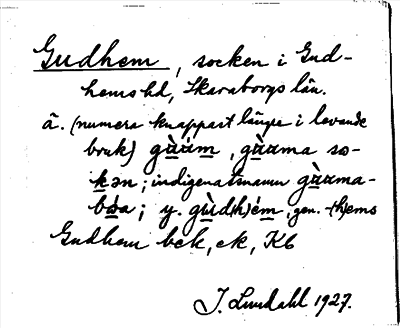 Gudhem, socken i Gud-
hems hd, Skaraborgs län.
ä. (numera knappast längre i levande
bruk) gùu̇m, gùuma so-
kən; indigenatnamn gùuma-
bóa; y. gùd(h)ém, gen. -(h)ems
Gudhem bek, ek, Kb
J. Lundahl 1927.